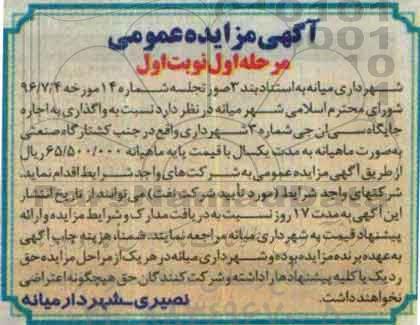 آگهی مزایده عمومی
مرحله اول نوبت اول
شهرداری میانه به استناد بند ۳ صورتجلسه شماره ۱۴ مورخه ۹۶/۷/۴
شورای محترم اسلامی شهر میانه در نظر دارد نسبت به واگذاری به اجاره
جایگاه سی ان جی شماره ۳ شهرداری واقع در جنب کشتارگاه صنعتی
به صورت ماهیانه به مدت یکسال با قیمت پایه ماهیانه ۶۵/۵۰۰/۰۰۰ ریال
از طریق آگهی مزایده عمومی به شرکت های واجد شرایط اقدام نماید.
شرکتهای واجد شرایط (مورد تأیید شرکت نفت) می توانند از تاریخ انتشار
این آگهی به مدت ۱۷ روز نسبت به دریافت مدارک و شرایط مزایده و ارائه
پیشنهاد قیمت به شهرداری میانه مراجعه نمایند. ضمنا، هزینه چاپ آگهی
به عهده برنده مزایده بوده و شهرداری میانه در هر یک از مراحل مزایده حق
رد یک یا کلیه پیشنهادها را داشته و شرکت کنندگان حق هیچگونه اعتراضی
نخواهند داشت. نصیری_شهردار میانه